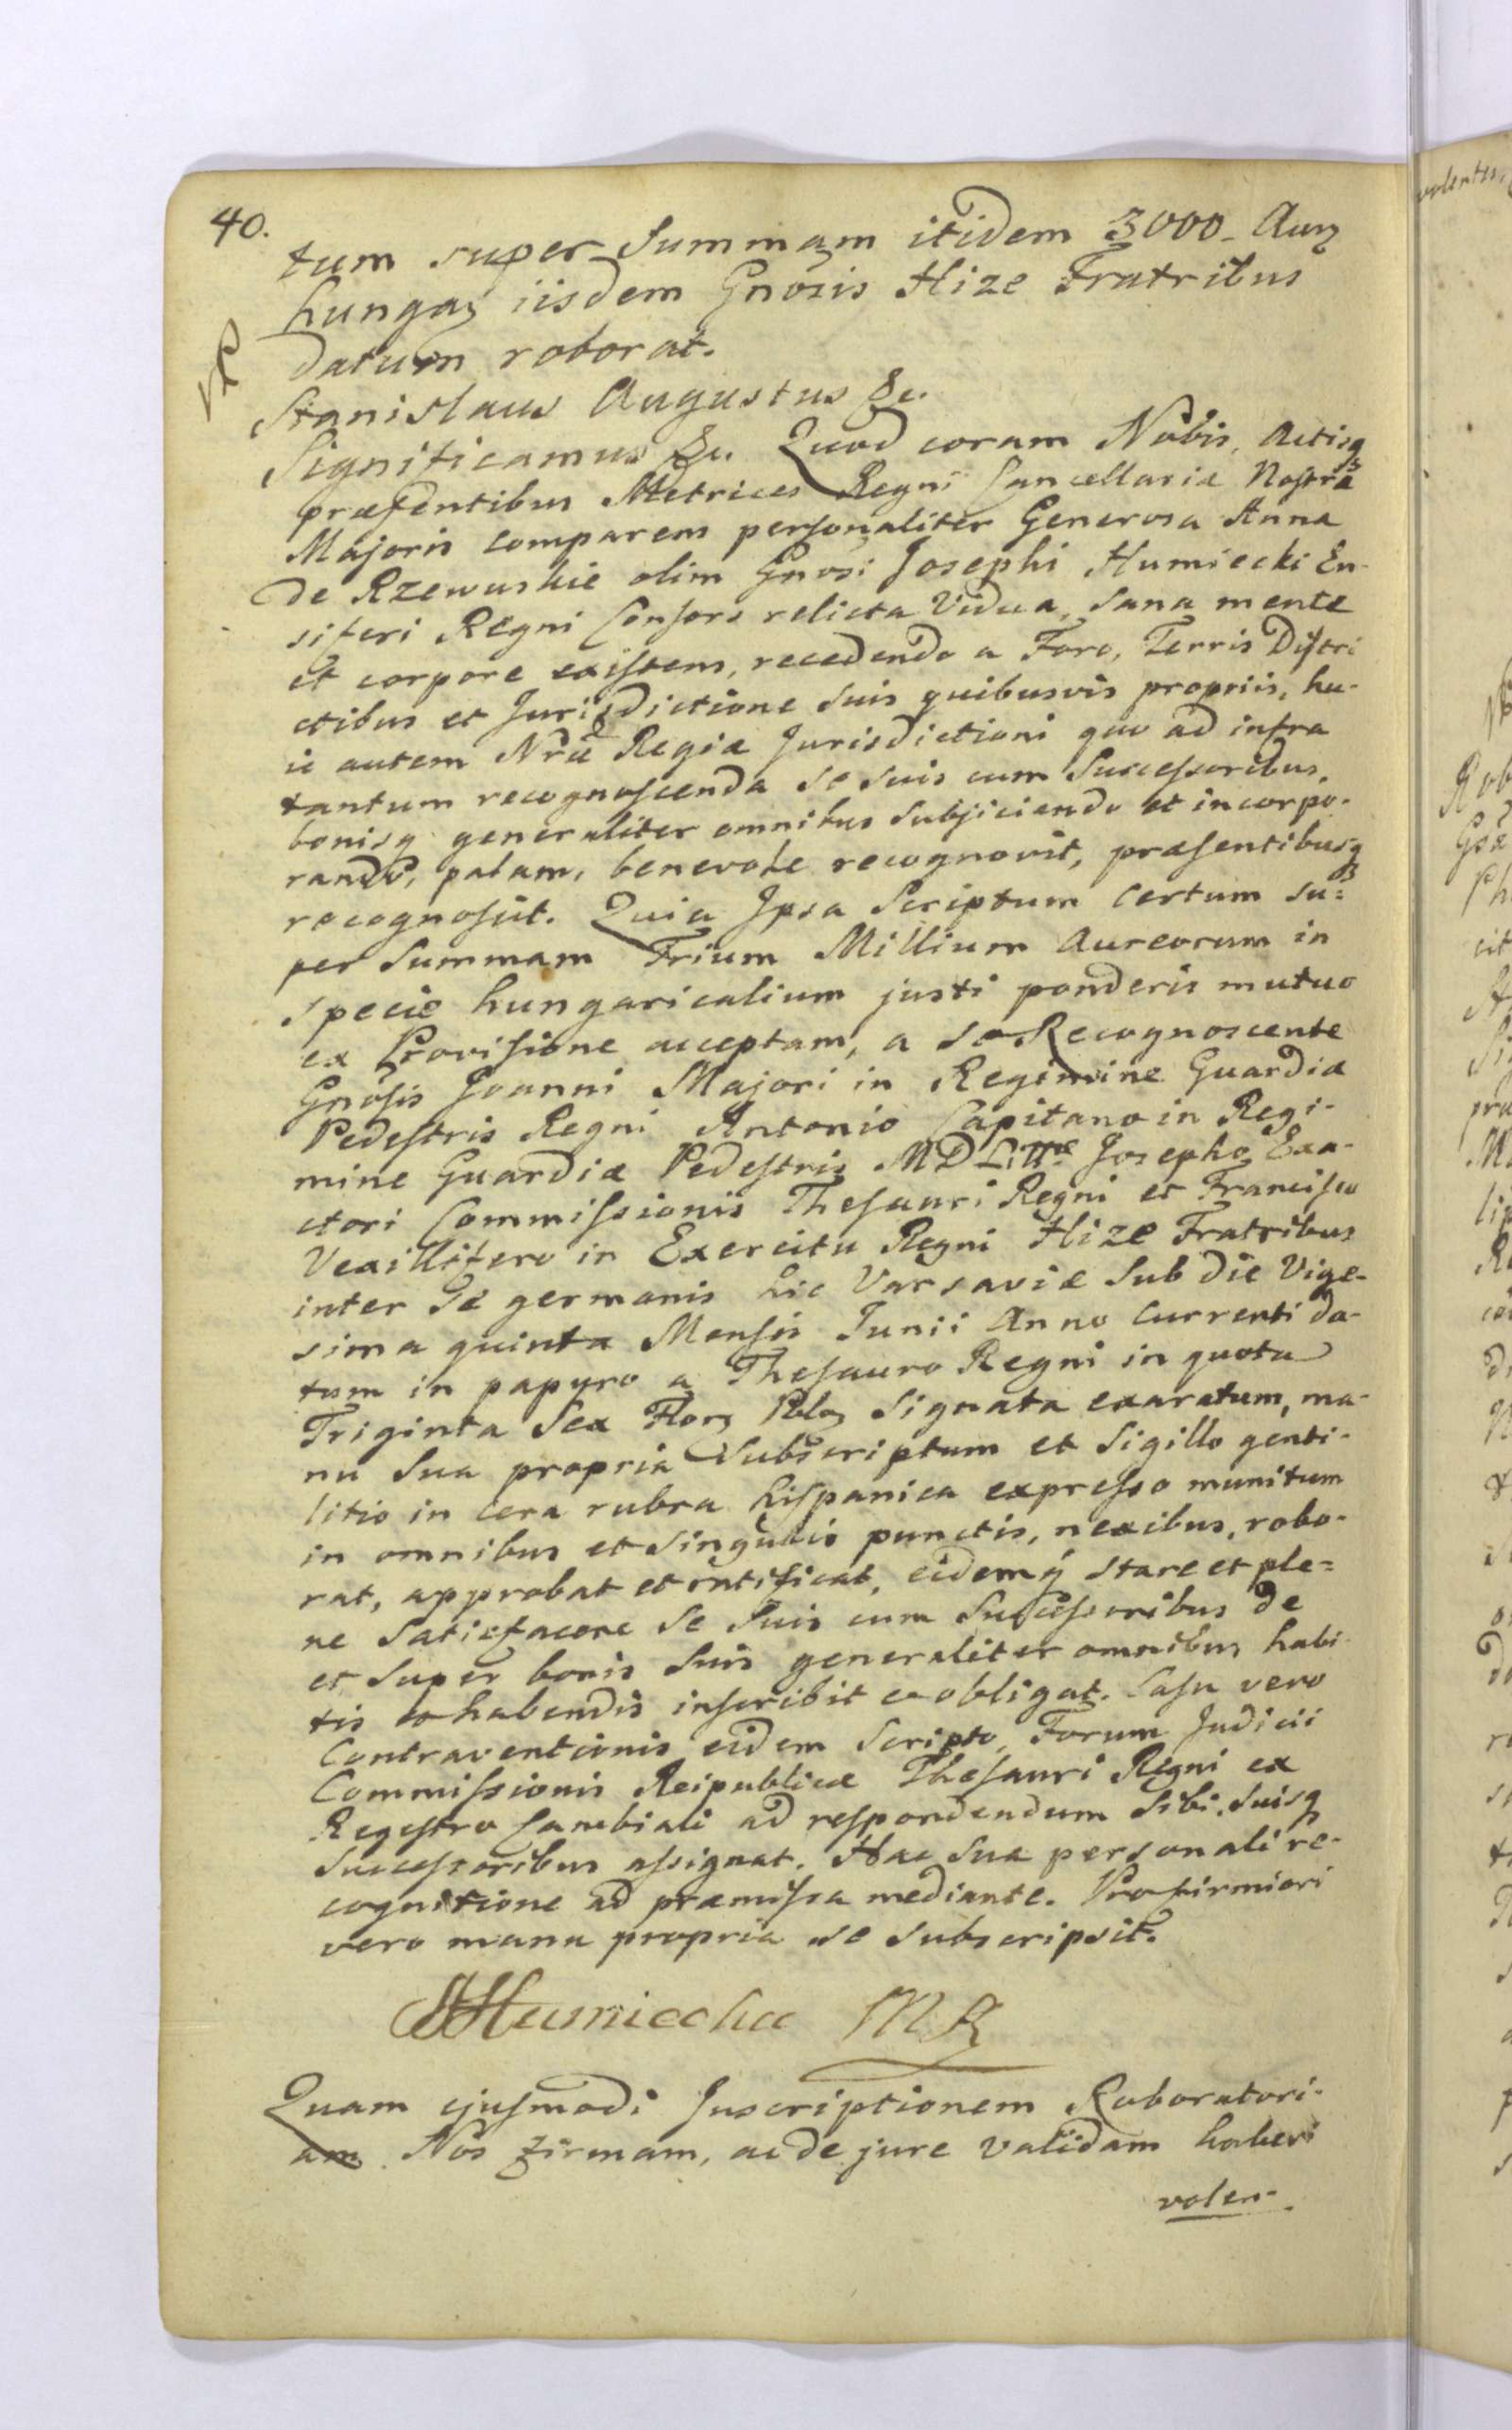 40.
tum super Summam itidem 3000 Aurꝫ
hungaꝫ iisdem Gnosis Hize Fratribus
datum roborat.
Stanislaus Augustus &c.
Significamus &c. Quod coram Nobis, Actisq
præsentibus Metrices Regni Cancellariæ Nostræ
Majoris comparens personaliter Generosa Anna
de Rzewuskie olim Gnosi Josephi Humiecki En-
siferi Regni Consors relicta Vidua, sana mente
et corpore existens, recedendo a Foro, Terris Distri
ctibus et Jurisdictione suis quibusvis propriis, hu-
ic autem Nræ Regiæ Jurisdictioni quo ad infra
tantum recognoscenda se suis cum Successoribus,
bonisq generaliter omnibus subjiciendo et incorpo-
rando, palam, benevole recognovit, præsentibusq
recognoscit. Quia Ipsa Scriptum certum su=
per Summam Trium Millium Aureorum in
specie hungaricalium justi ponderis mutuo
ex Provisione acceptam, a se Recognoscente
Gnosis Joanni Majori in Regimine Guardiæ
Pedestris Regni Antonio Capitano in Regi-
mine Guardiæ Pedestris MD Littæ Josepho Exa-
ctori Commissionis Thesauri Regni et Francisco
Vexillifero in Exercitu Regni Hize Fratribus
inter se germanis hic Varsaviæ sub die Vige-
sima quinta Mensis Junii Anno Currenti da-
tum in papyro a Thesauro Regni in quota
Triginta Sex Florꝫ Polꝫ Signata exaratum, ma-
nu sua propria Subscriptum et Sigillo genti-
litio in cera rubra hispanica expresso munitum
in omnibus et singulis punctis, nexibus, robo-
rat, approbat et ratificat, eidemq stare et ple=
ne satisfacere se suis cum Successoribus de
et super bonis suis generaliter omnibus habi-
tis et habendis inscribit et obligat. Casu vero
Contraventionis eidem Scripto, Forum Judicii
Commissionis Reipublicæ Thesauri Regni ex
Regestro Cambiali ad respondendum sibi, suisq
Successoribus assignat. Hac sua personali re-
cognitione ad præmissa mediante. Pro firmiori
vero manu propria se subscripsit.
AHumiecka MP
Quam ejusmodi Inscriptionem Roboratori-
am Nos firmam, ac de jure validam haberi
volen-